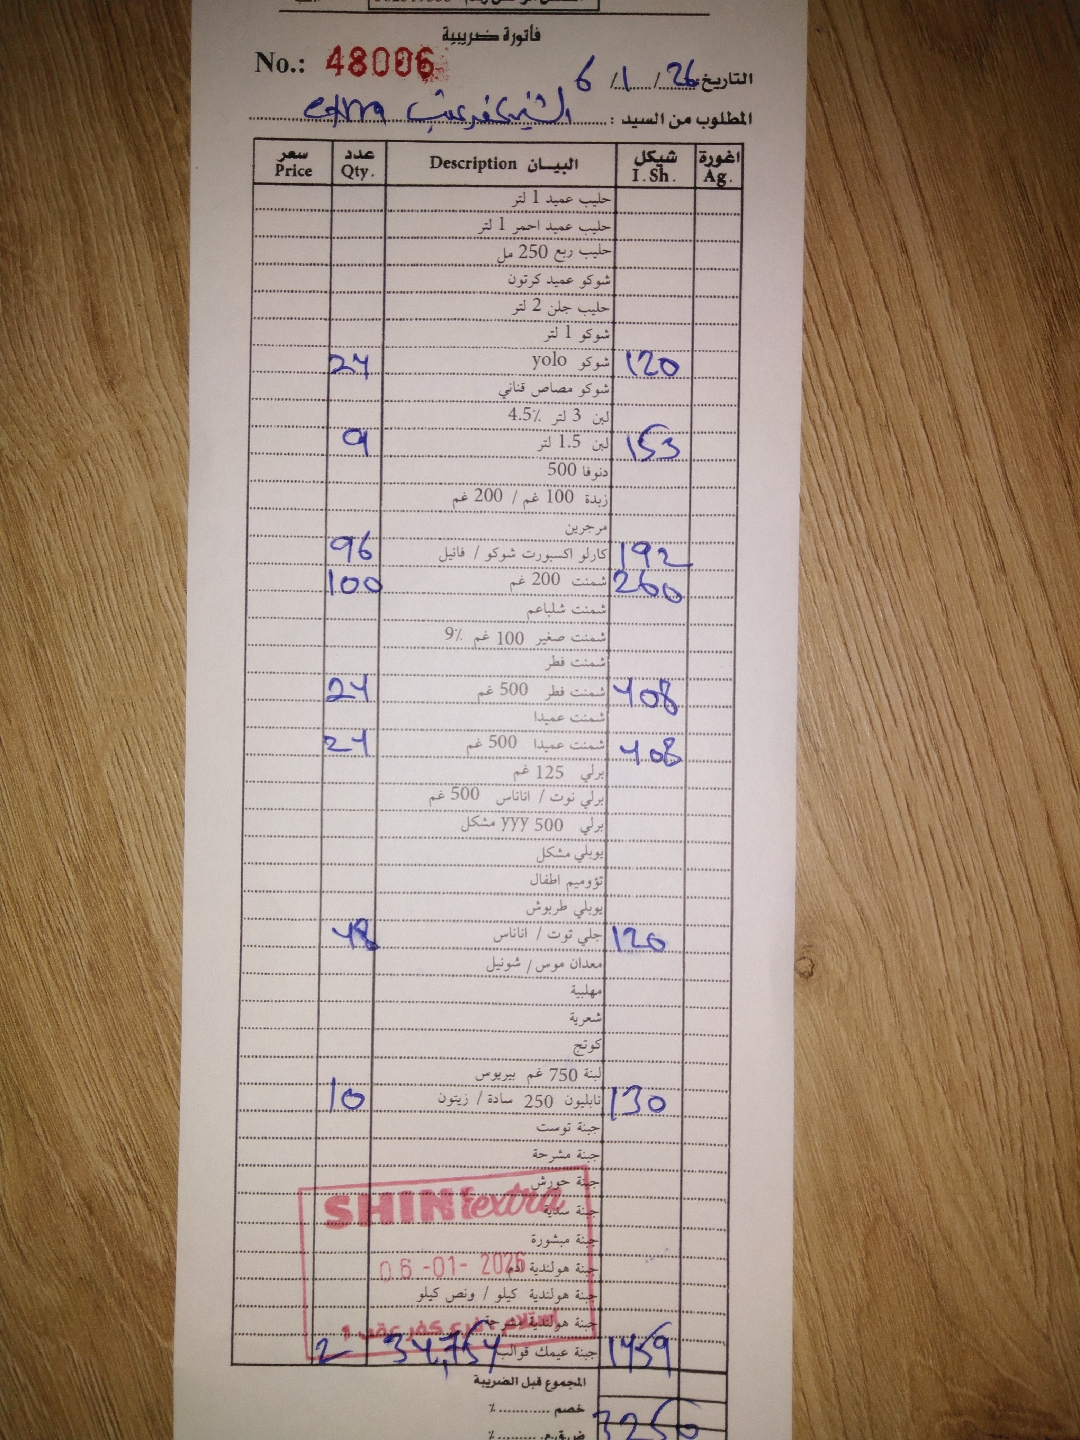 فاتورة ضريبية
No.: 48006
التاريخ: 26/1/6
المطلوب من السيد : الشني كفر عقب extra
سعر عدد البيان Description شيكل اغورة
Price Qty. I.Sh. Ag.
حليب عميد 1 لتر
حليب عميد احمر 1 لتر
حليب ربع 250 مل
شوكو عميد كرتون
حليب جلن 2 لتر
شوكو 1 لتر
24 شوكو yolo 120
شوكو مصاص قناني
لبن 3 لتر 4.5%
9 لبن 1.5 لتر 153
دنوفا 500
زبدة 100 غم / 200 غم
مرجرين
96 كارلو اكسبورت شوكو / فانيل 192
100 شمنت 200 غم 260
شمنت شلباعم
شمنت صغير 100 غم 9%
شمنت فطر
24 شمنت فطر 500 غم 408
شمنت عميدا
24 شمنت عميدا 500 غم 408
برلي 125 غم
برلي توت / اناناس 500 غم
برلي 500 yyy مشكل
يوبلي مشكل
تؤوميم اطفال
يوبلي طربوش
48 جلي توت / اناناس 120
معدان موس / شونيل
مهلبية
شعرية
كوتج
لبنة 750 غم بيريوس
10 نابليون 250 سادة / زيتون 130
جبنة توست
جبنة مشرحة
جبنة حورش
SHINI extra
جبنة
جبنة مبشورة
06-01-2026
جبنة هولندية
جبنة هولندية كيلو / ونص كيلو
جبنة هولندية مشرحة
استلام فرع كفر عقب 1
2 34,754 جبنة عيمك قوالب 1459
المجموع قبل الضريبة
خصم ........... %
3250
ض.ق.م. ......... %